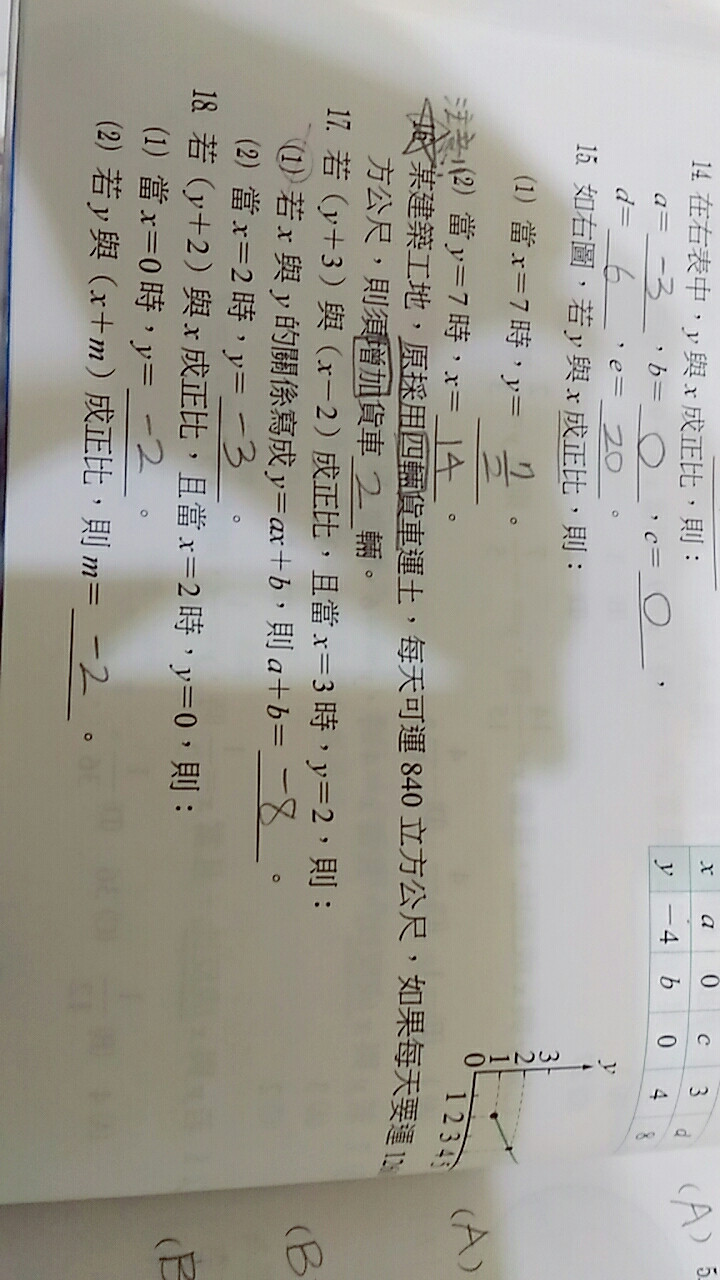 14. 在右表中，y與x成正比，則：
a= -3 ，b= 0 ，c= 0 ，
d= 6 ，e= 20 。
x a 0 c 3 d
y -4 b 0 4 8
15. 如右圖，若y與x成正比，則：
(1) 當x=7時，y= 。
(2) 當y=7時，x= 14 。
y
3
2
1
0
1 2 3 4 5
注意!!
16. 某建築工地，原採用四輛貨車運土，每天可運840立方公尺，如果每天要運12
方公尺，則須增加貨車 2 輛。
17. 若(y+3)與(x-2)成正比，且當x=3時，y=2，則：
(1) 若x與y的關係寫成y=ax+b，則a+b= -8 。
(2) 當x=2時，y= -3 。
18. 若(y+2)與x成正比，且當x=2時，y=0，則：
(1) 當x=0時，y= -2 。
(2) 若y與(x+m)成正比，則m= -2 。
(A) 5
(A)
(B
(B